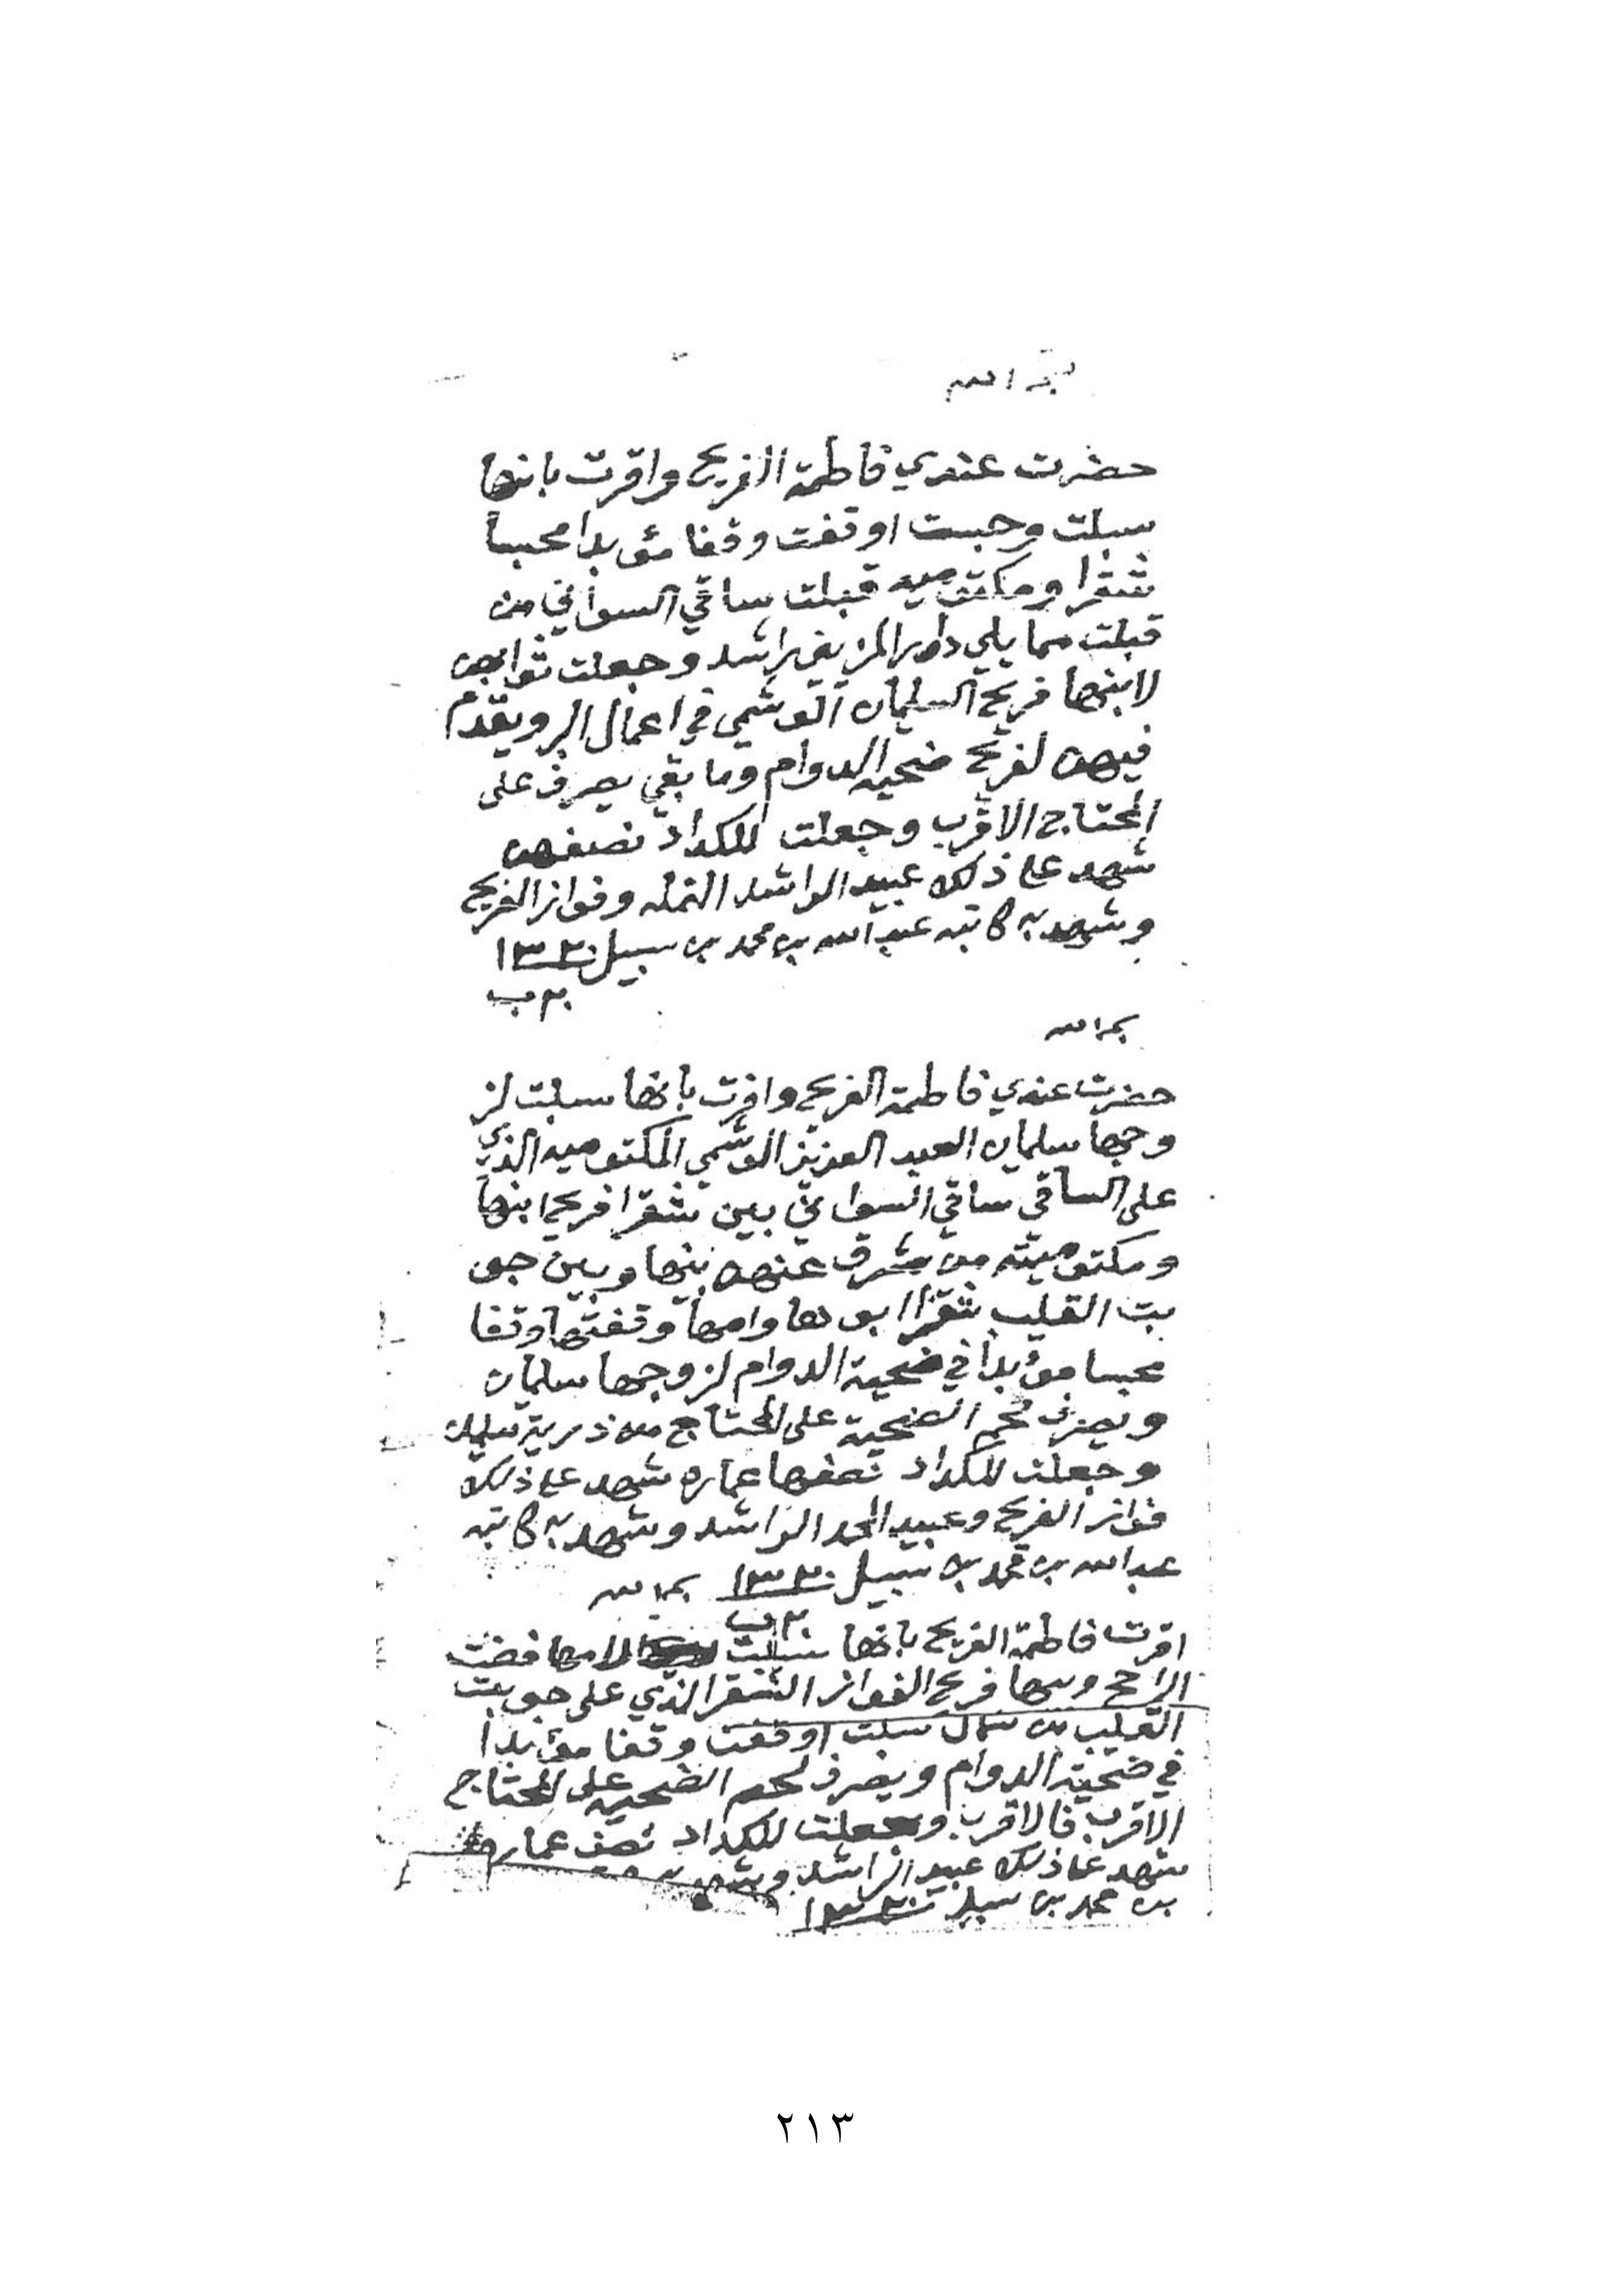 بسم الله
حضرت عندي فاطمة الفريح واقرت بانها
سبلت وحبست اوقفت وقفا مؤبدا محبسا
شقرا ومكتوميه قبلت ساقي السواني من
قبلت مما يلي دار راشد وجعلت ثوابهن
لابنها فريح السليمان الوشمي في اعمال البر ويقدم
فيهن لفريح ضحية الدوام وما بقي يصرف على
المحتاج الاقرب وجعلت للكداد نصفهن
شهد على ذلك عبيد الراشد النمله وفواز الفريح
وشهد به كاتبه عبدالله بن محمد بن سبيل ١٣٣٠
٢٠ ب
بسم الله
حضرت عندي فاطمة الفريح واقرت بانها سبلت لز
وجها سلمان العبد العزيز الوشمي المكتوميه الذي
على الساقي ساقي السواني بين شقرا فريح ابنها
ومكتوميته من شرق عنهن بينها وبين جو
بت القليب شقرا ابوها وامها وقفتها وقفا
محبسا مؤبدا في ضحية الدوام لزوجها سلمان
ويصرف لحم الضحية على المحتاج من ذرية سليمان
وجعلت للكداد نصفها عماره شهد على ذلك
فواز الفريح وعبيد المحمد الراشد وشهد به كاتبه
عبدالله بن محمد بن سبيل ١٣٣٠
٢٠ ب
بسم الله
اقرت فاطمة الفريح بانها سبلت لامها فضت
الراجح فريح الفواز الشقرا الذي على جوبت
القليب من شمال سبلت اوقفت وقفا مؤبدا
في ضحية الدوام ويصرف لحم الضحية على المحتاج
الاقرب فالاقرب وجعلت للكداد نصف عماره
شهد على ذلك عبيد الراشد وشهد به
بن محمد بن سبيل ١٣٣٠
٢١٣